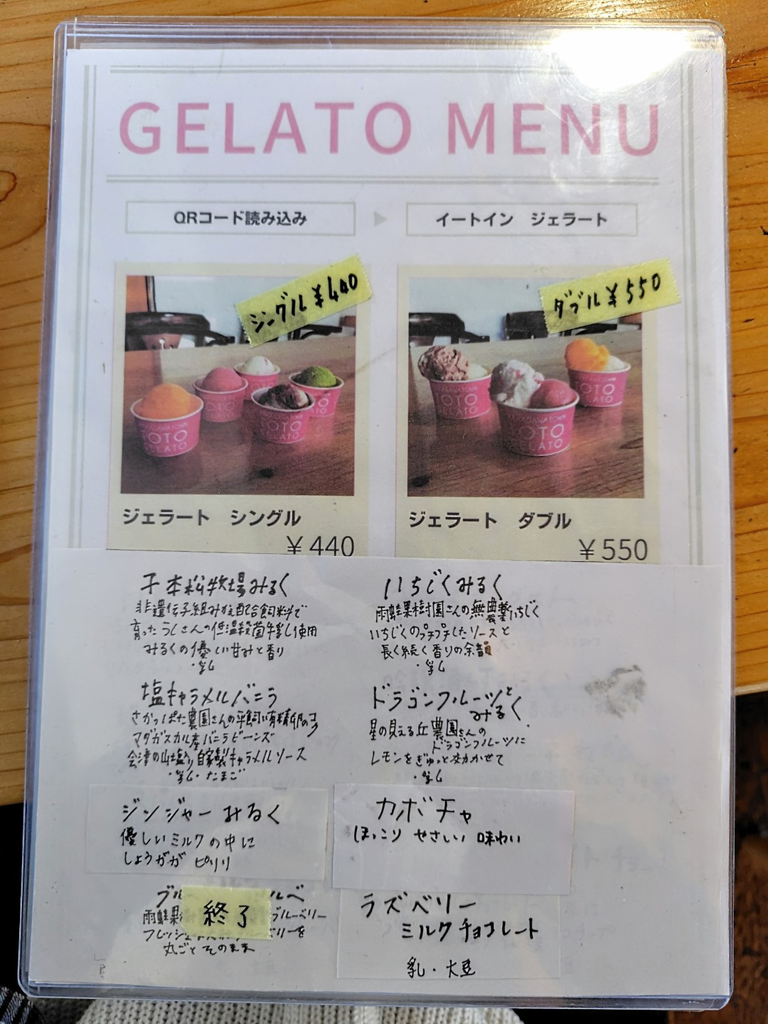 GELATO MENU
QRコード読み込み
イートイン ジェラート
シングル ¥440
ダブル ¥550
ジェラート シングル
¥440
ジェラート ダブル
¥550
千本松牧場みるく
非遺伝子組みかえ配合飼料で
育ったうしさんの低温殺菌牛乳使用
みるくの優しい甘みと香り
・乳
いちじくみるく
雨蛙果樹園さんの無農薬いちじく
いちじくのプチプチしたソースと
長く続く香りの余韻
・乳
塩キャラメルバニラ
さかっぱた農園さんの平飼い有精卵の
マダガスカル産バニラビーンズ
会津の山塩入自家製キャラメルソース
・乳・たまご
ドラゴンフルーツと
みるく
星の見える丘農園さんの
ドラゴンフルーツに
レモンをぎゅっと効かせて
・乳
ジンジャーみるく
優しいミルクの中に
しょうがが ピリリ
カボチャ
ほっこり やさしい 味わい
終了
ブルーベリー
丸ごとそのまま
ラズベリー
ミルクチョコレート
乳・大豆